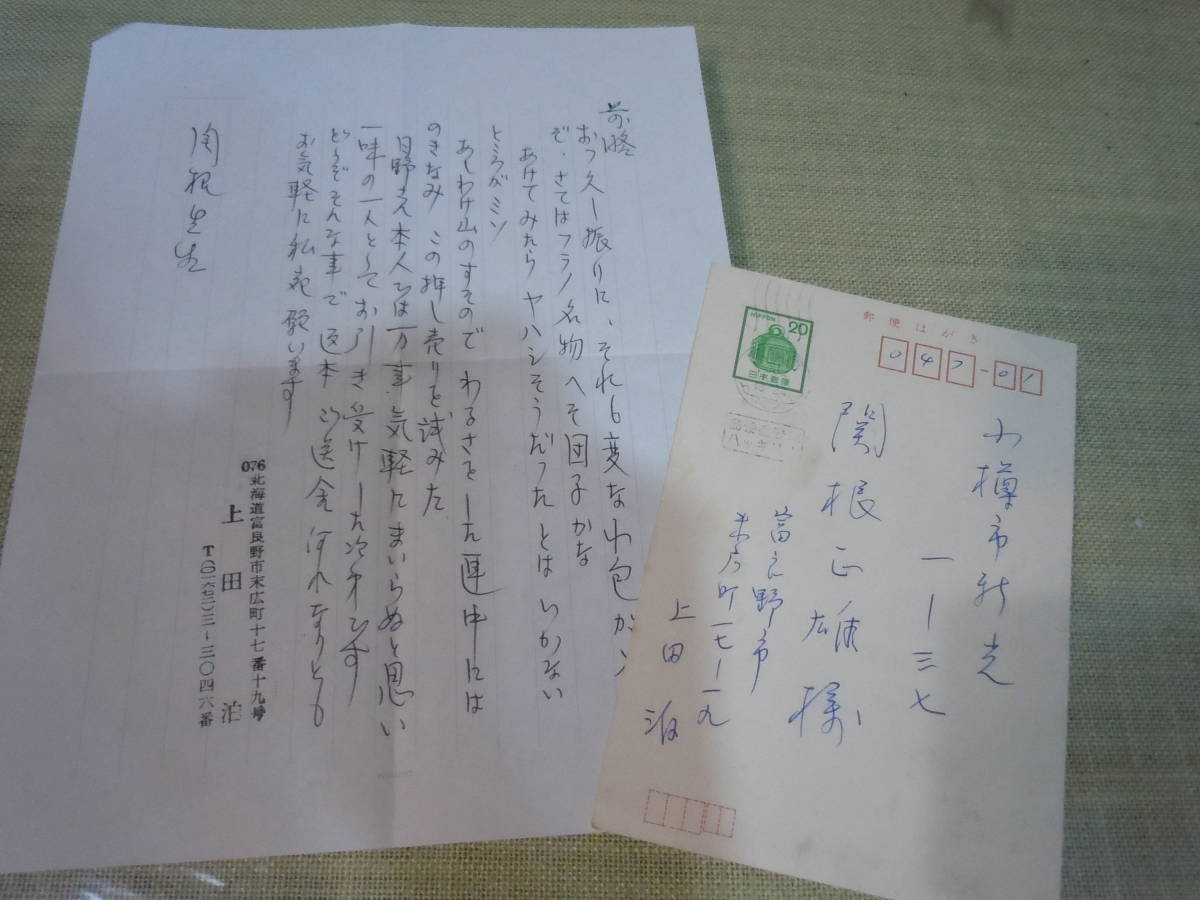 前略
お久し振りに、それも変な小包が
ぞ、さてはフラノ名物へそ団子かな
あけてみたらヤハシそうだったとはいかない
ところがミソ
あしわけ山のすそのでわるさをした連中には
のきなみ この押し売りを試みた
日野さん本人では万事気軽にまいらぬと思い
一味の一人としてお引き受けした次第です
どうぞそんな事で返本 送金何れなりとも
お気軽に 願います
関根先生
076北海道富良野市末広町十七番十九号
上田 泊
T(〇一六七二)三-三〇四六番
郵便はがき
NIPPON 20
日本郵便
047-01
小樽市新光
一-三七
関根正雄様
富良野市
末広町一七-一九
上田 泊